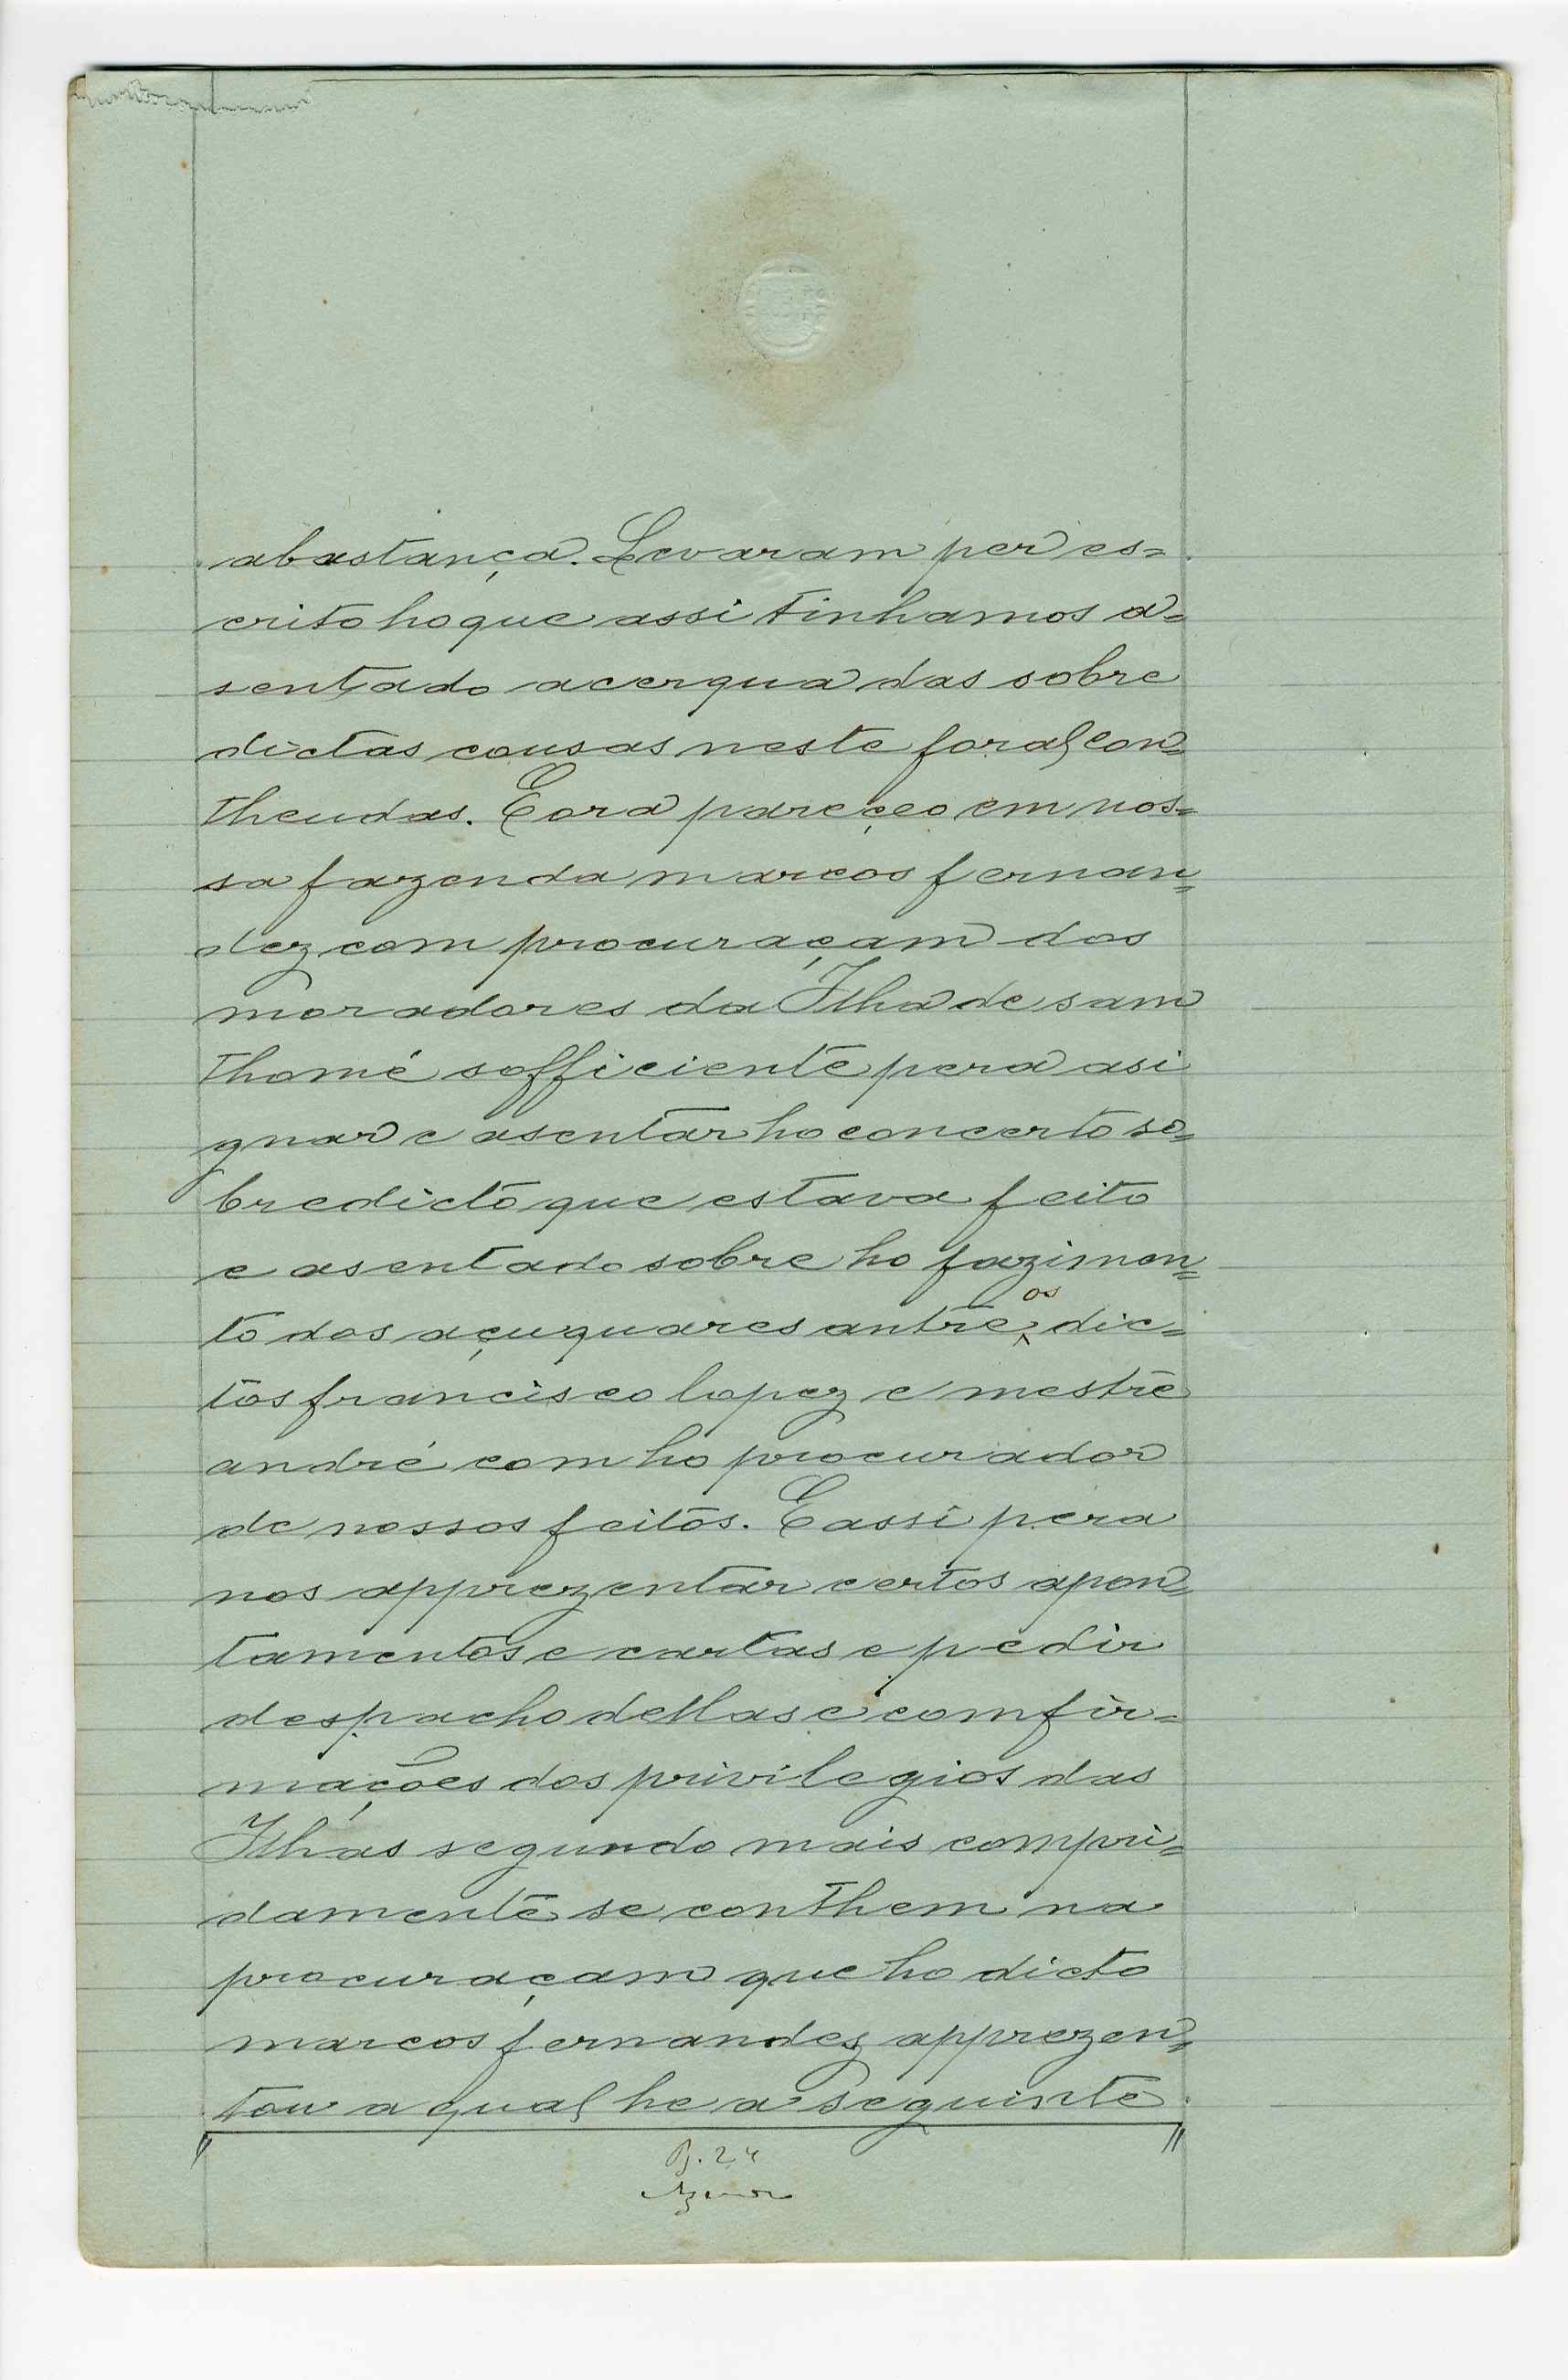 abastança. Levaram per es=
crito ho que assi tinhamos a=
sentado acerqua das sobre
dictas cousas neste foral con=
theudas. E ora pareçeo em nos=
sa fazenda marcos fernan=
dez com procuraçam dos
moradores da Ilha de sam
thomé sofficiente pera asi
gnar e asentar ho concerto so=
bredicto que estava feito
e asentado sobre ho fazimen=
to dos açuquares antre os dic=
tos francisco lopez e mestre
andré com ho procurador
de nossos feitos. E assi pera
nos apprezentar certos apon=
tamentos e cartas e pedir
despacho dellas e comfir=
mações dos privilegios das
Ilhas segundo mais compri=
damente se conthem na
procuraçam que ho dicto
marcos fernandez apprezen=
tou a qual he a seguinte
P. 24